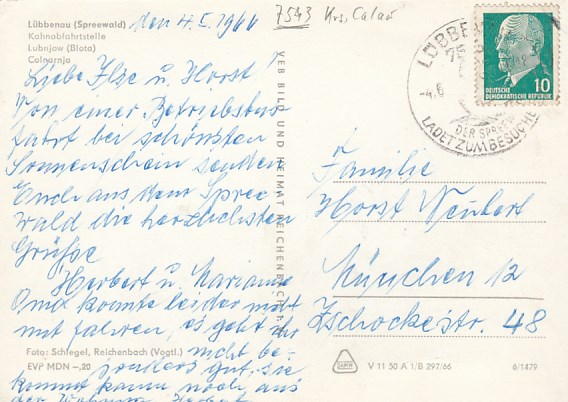 Lübbenau (Spreewald)
Kahnabfahrtstelle
Lubnjow (Błota)
Colnarnja
den 4.5.1966
7543 Krs. Calau
Liebe Ilse u. Horst
Von einer Betriebsbus
fahrt bei schönsten
Sonnenschein senden
Euch aus dem Spree
wald die herzlichsten
Grüße
Herbert u. Marianne
Omi konnte leider nicht
mit fahren, es geht ihr
nicht be-
sonders gut, sie
kommt kaum noch aus
der Wohnung Herbert
Foto: Schlegel, Reichenbach (Vogtl.)
EVP MDN -,20
VEB BILD UND HEIMAT REICHENBACH
DEUTSCHE
DEMOKRATISCHE REPUBLIK
10
LÜBBE
-4.
DER SPREEW
LADET ZUM BESUCHE
Familie
Horst Neubert
München 12
Zschockestr. 48
V 11 50 A 1/B 297/66
6/1479